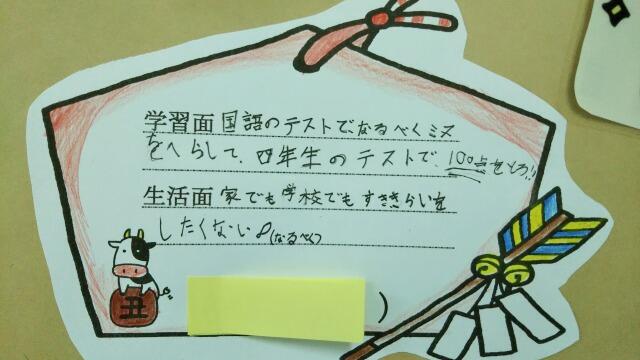 学習面 国語のテストでなるべくミス
をへらして、四年生のテストで、100点をとる!!
生活面 家でも学校でもすききらいを
したくない。(なるべく)
丑
)